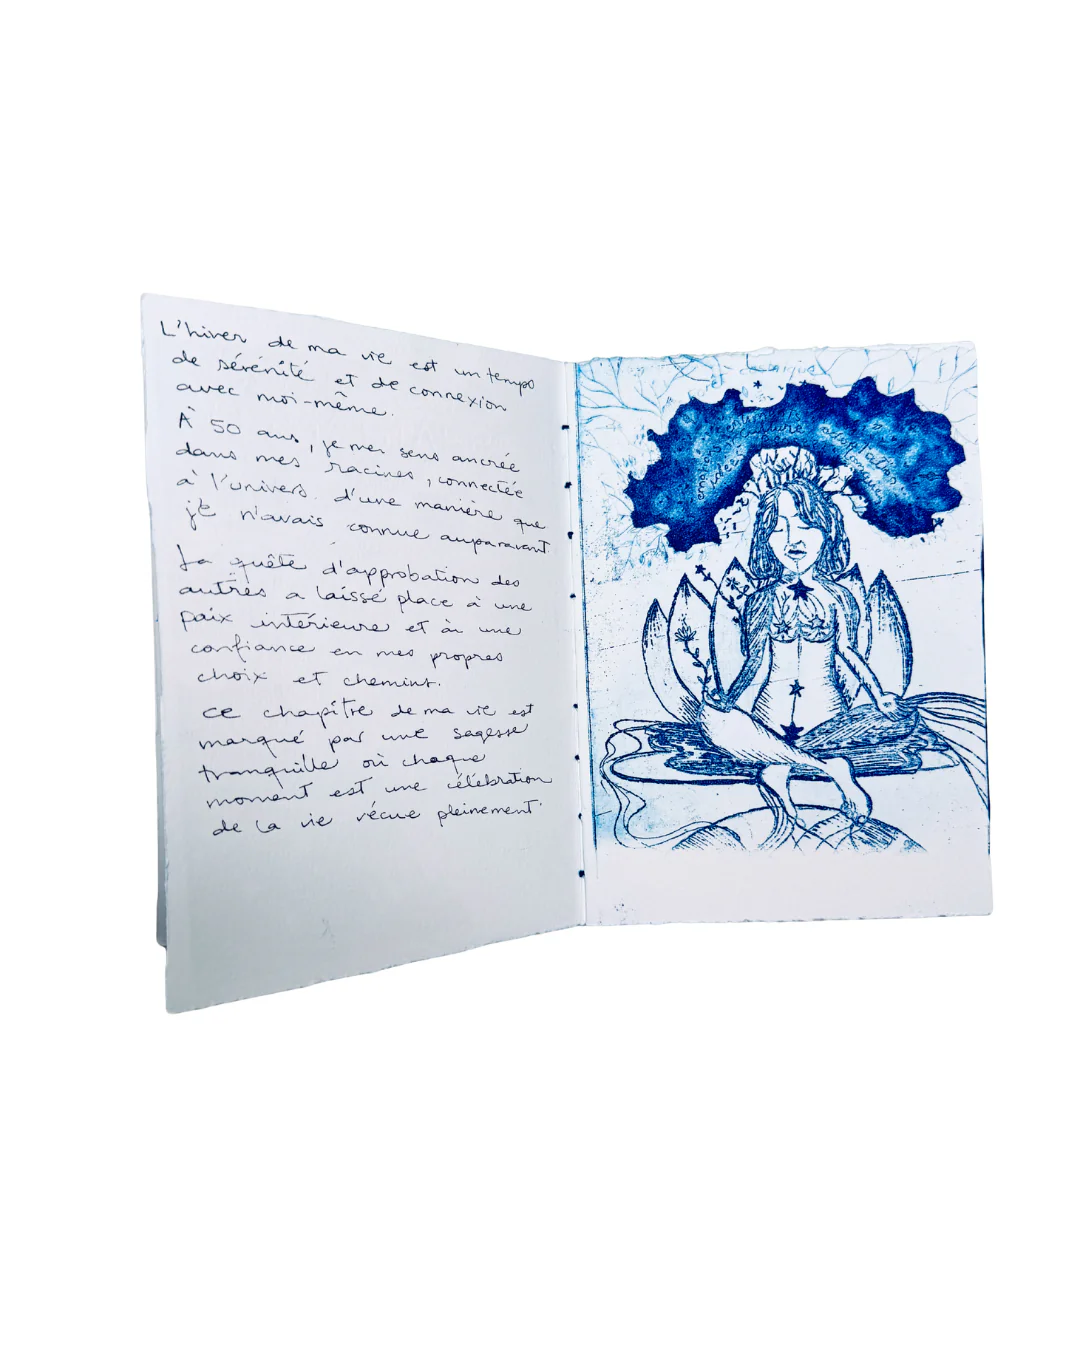 L'hiver de ma vie est un temps
de sérénité et de connexion
avec moi-même.
À 50 ans, je me sens ancrée
dans mes racines, connectée
à l'univers d'une manière que
je n'avais connue auparavant
La quête d'approbation des
autres a laissé place à une
paix intérieure et à une
confiance en mes propres
choix et chemins.
ce chapitre de ma vie est
marqué par une sagesse
tranquille où chaque
moment est une célébration
de la vie vécue pleinement.